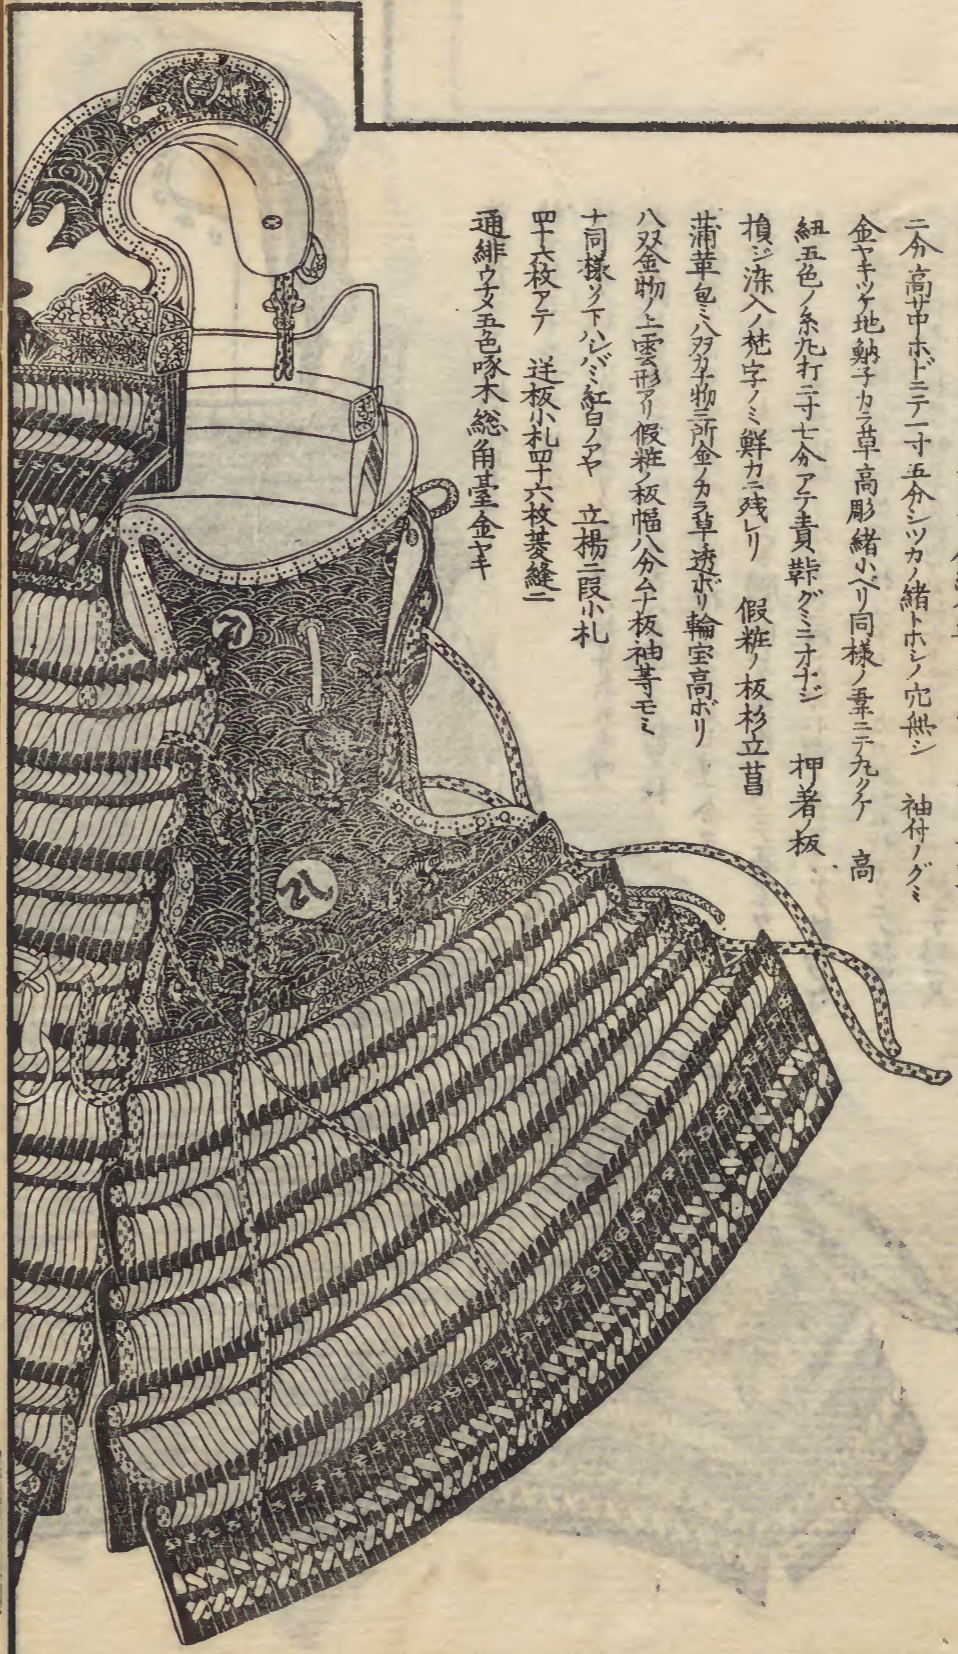 二分高サ中ホドニテ一寸五分シツカノ緒トホシノ穴無シ　袖付ノグミ
金ヤキツケ地魶子カニ草高彫緒小ベリ同様ノ韋ニテ丸クケ　高
紐五色ノ糸丸打二寸七分アテ責鞐グミニオナジ　押着ノ板
損ジ染入ノ梵字ノミ鮮カニ残レリ　假粧ノ板杉立菖
蒲革包ミ八双カナ物三所金カラ草透ボリ輪宝高ボリ
八双金物ノ上雲形アリ假粧ノ板幅八分ムナ板袖等モミ
ナ同様ソノ下ハシバミ紅白ノアヤ　立揚二段小札
四十六枚アテ　逆板小札四十六枚菱縫二
通緋ウチメ五色啄木総角臺金ヤキ